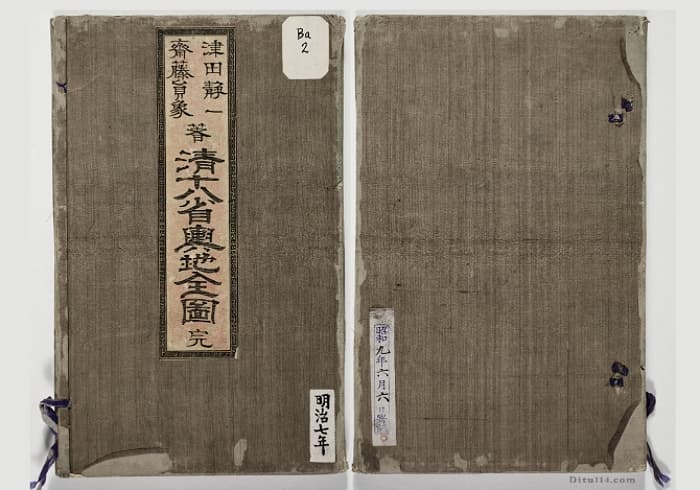 Ba
2
津田靜一
齋藤員象
著
清十八省輿地全圖
完
明治七年
昭和九年六月六日
Ditu114.com